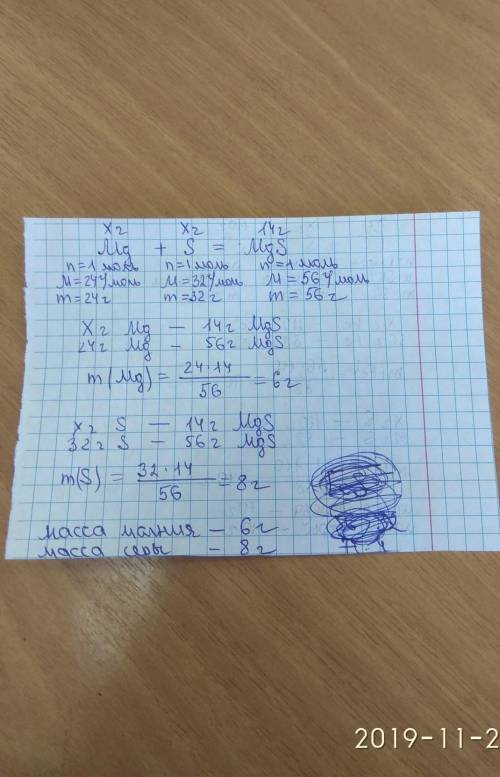 Xг Xг 14г
Mg + S = MgS
n=1моль n=1моль n=1моль
M=24г/моль M=32г/моль M=56г/моль
m=24г m=32г m=56г
Xг Mg — 14г MgS
24г Mg — 56г MgS
m(Mg) = 24·14 / 56 = 6г
Xг S — 14г MgS
32г S — 56г MgS
m(S) = 32·14 / 56 = 8г
масса магния — 6г
масса серы — 8г
2019-11-2